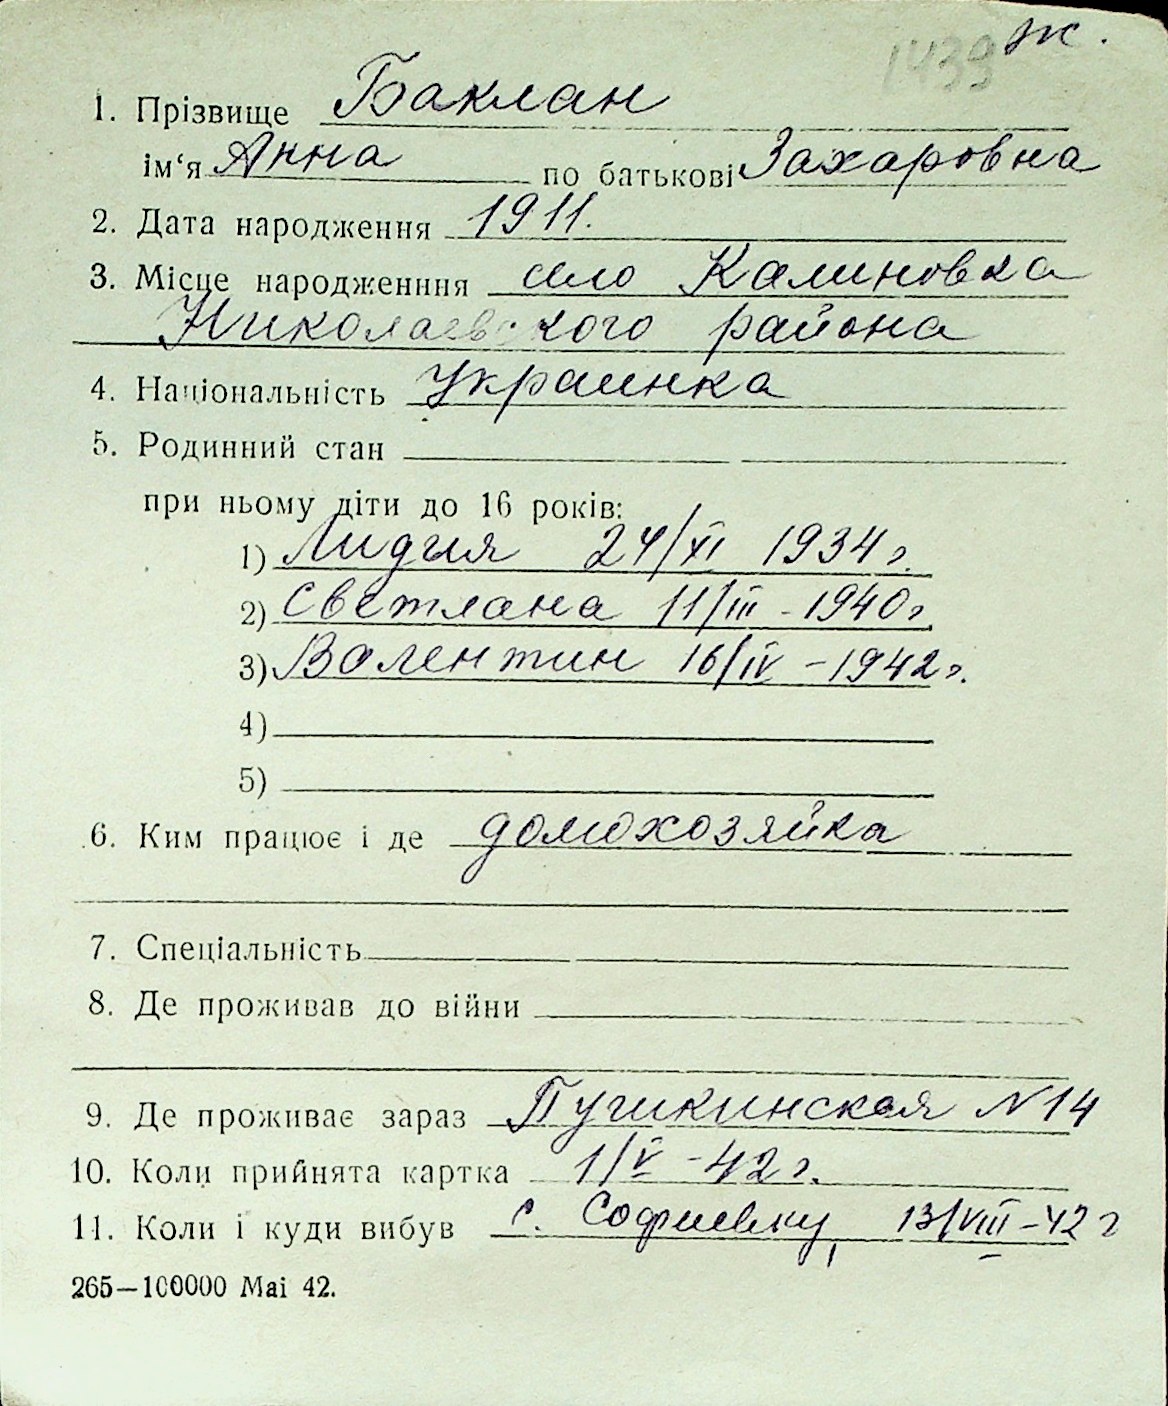 1439 ж.
1. Прізвище Баклан
ім‘я Анна по батькові Захаровна
2. Дата народження 1911.
3. Місце народженння село Калиновка
Николаевского района
4. Національність Украинка
5. Родинний стан
при ньому діти до 16 років:
1) Лидия 24/XI 1934 г.
2) Светлана 11/III - 1940 г.
3) Валентин 16/IV - 1942 г.
4)
5)
6. Ким працює і де домохозяйка
7. Спеціальність
8. Де проживав до війни
9. Де проживає зараз Пушкинская N 14
10. Коли прийнята картка 1/V - 42 г.
11. Коли і куди вибув с. Софиевку, 13/VIII - 42 г
265—100000 Mai 42.